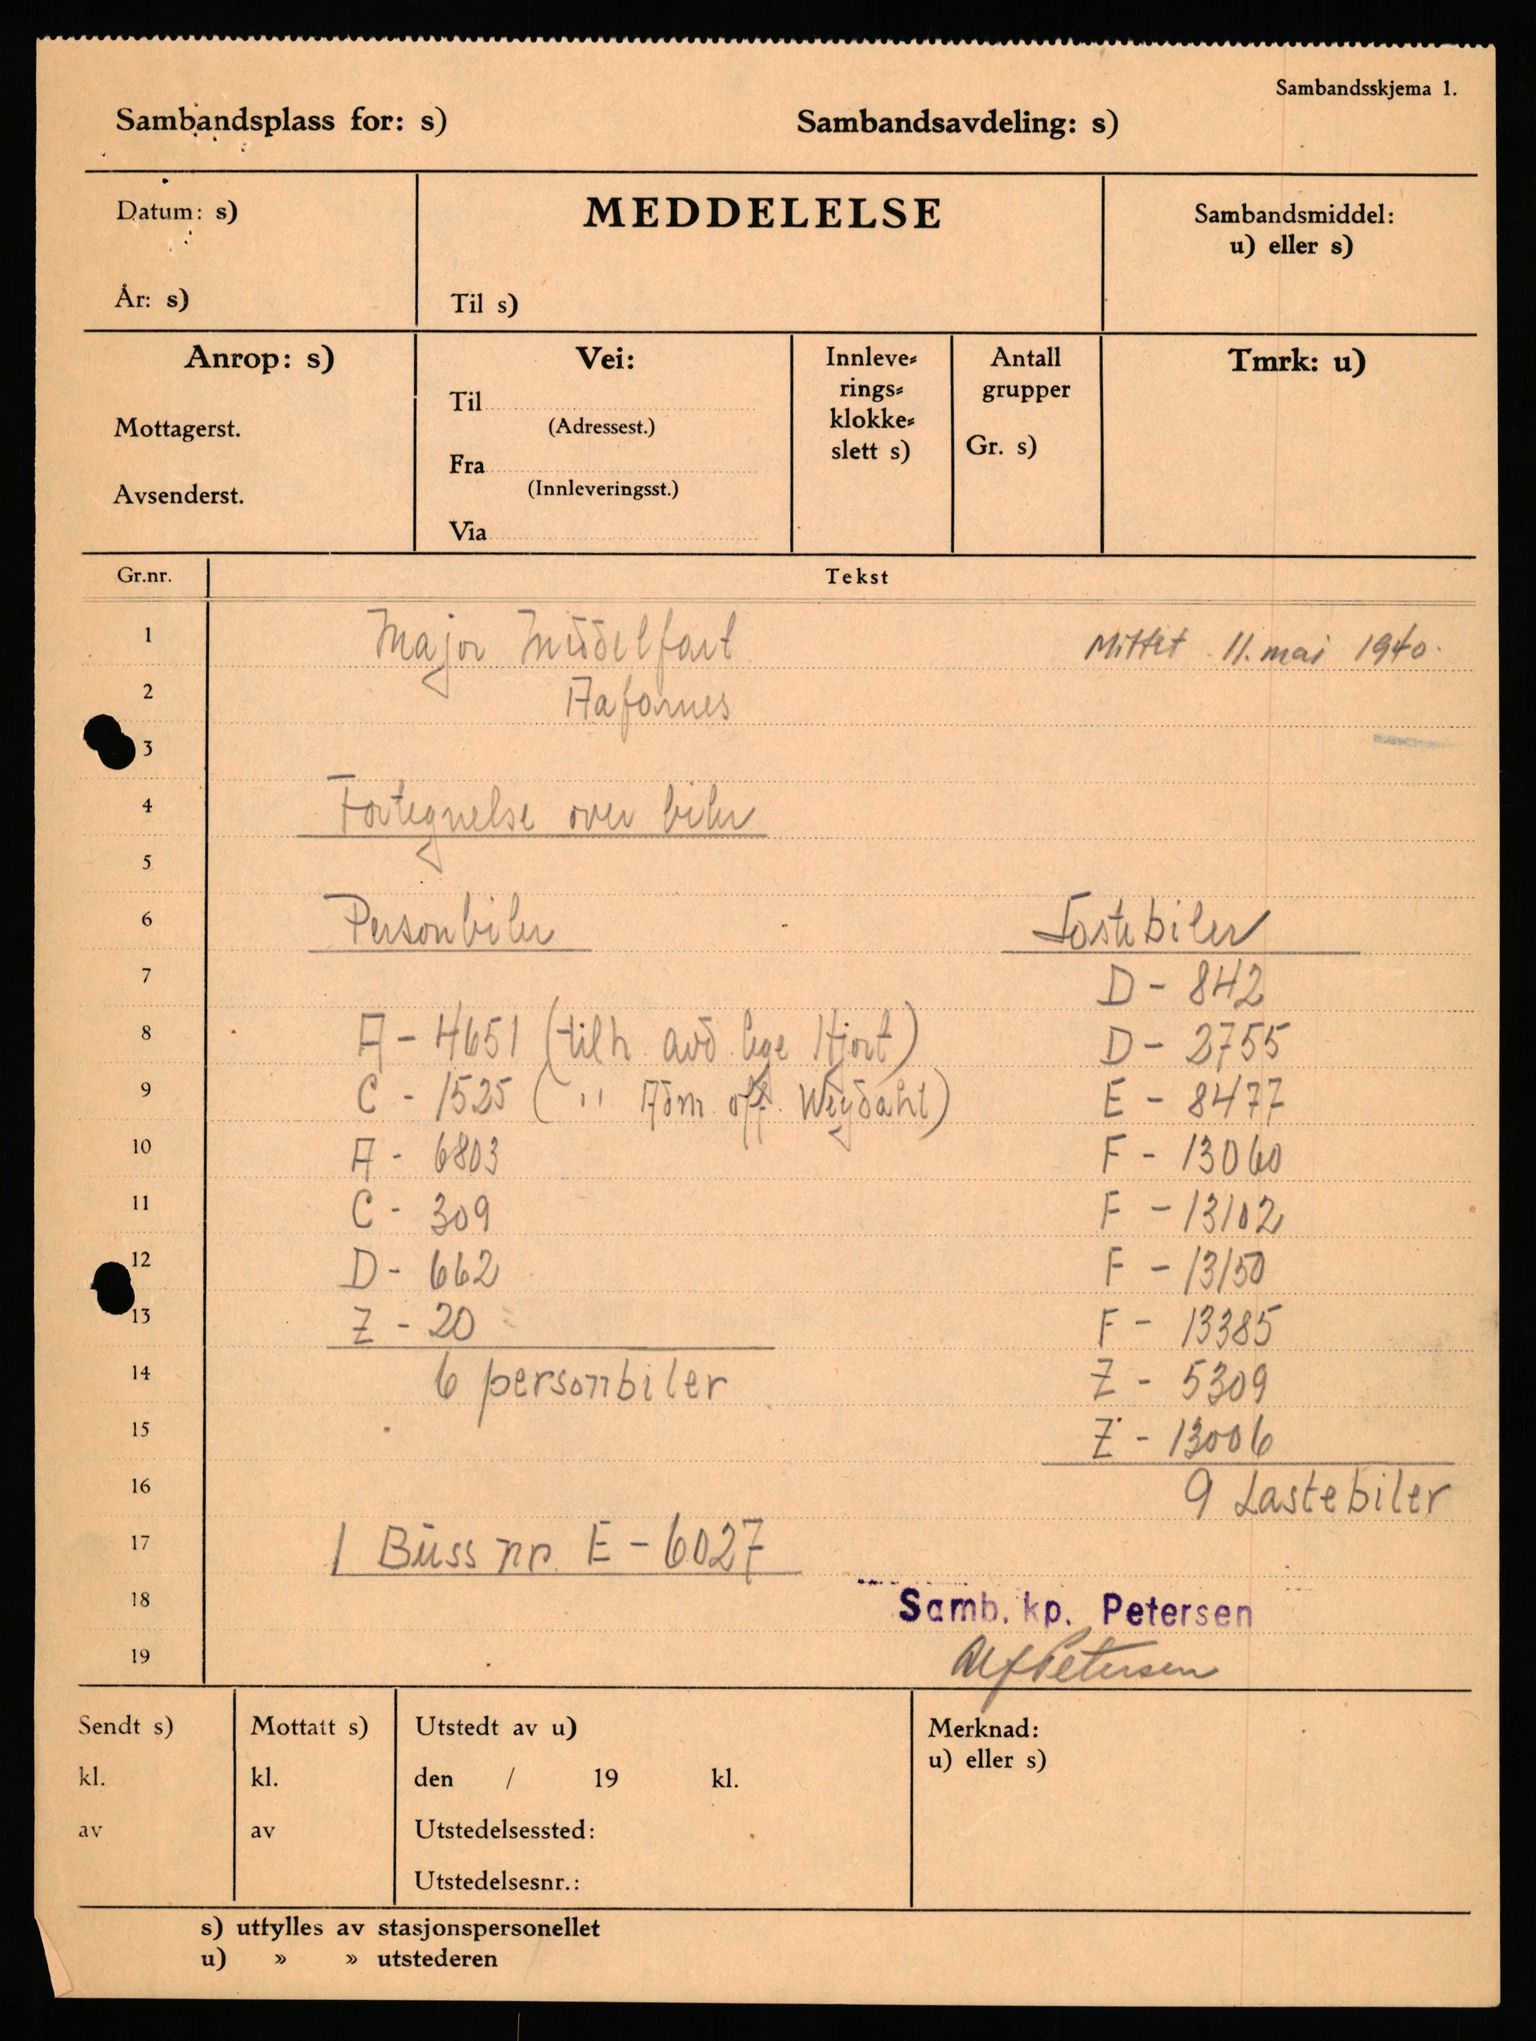 Sambandsskjema 1.
Sambandsplass for: s) Sambandsavdeling: s)
Datum: s)
År: s)
MEDDELELSE
Til s)
Sambandsmiddel:
u) eller s)
Anrop: s)
Mottagerst.
Avsenderst.
Vei:
Til
(Adressest.)
Fra
(Innleveringsst.)
Via
Innleve=
rings=
klokke=
slett s)
Antall
grupper
Gr. s)
Tmrk: u)
Gr.nr. Tekst
1 Major Middelfart Mittet 11. mai 1940.
2 Aafarnes
3
4 Fortegnelse over biler
5
6 Personbiler Lastebiler
7 D - 842
8 A - 4651 (tilh. avd. lege Hjort) D - 2755
9 C - 1525 ( " Adm. off. Weydahl) E - 8477
10 A - 6803 F - 13060
11 C - 309 F - 13102
12 D - 662 F - 13150
13 Z - 20 F - 13385
14 6 personbiler Z - 5309
15 Z - 13006
16 9 Lastebiler
17 1 Buss nr. E - 6027
18 Samb. kp. Petersen
19 Alf Petersen
Sendt s)
kl.
av
Mottatt s)
kl.
av
Utstedt av u)
den / 19 kl.
Utstedelsessted:
Utstedelsesnr.:
Merknad:
u) eller s)
s) utfylles av stasjonspersonellet
u) » » utstederen